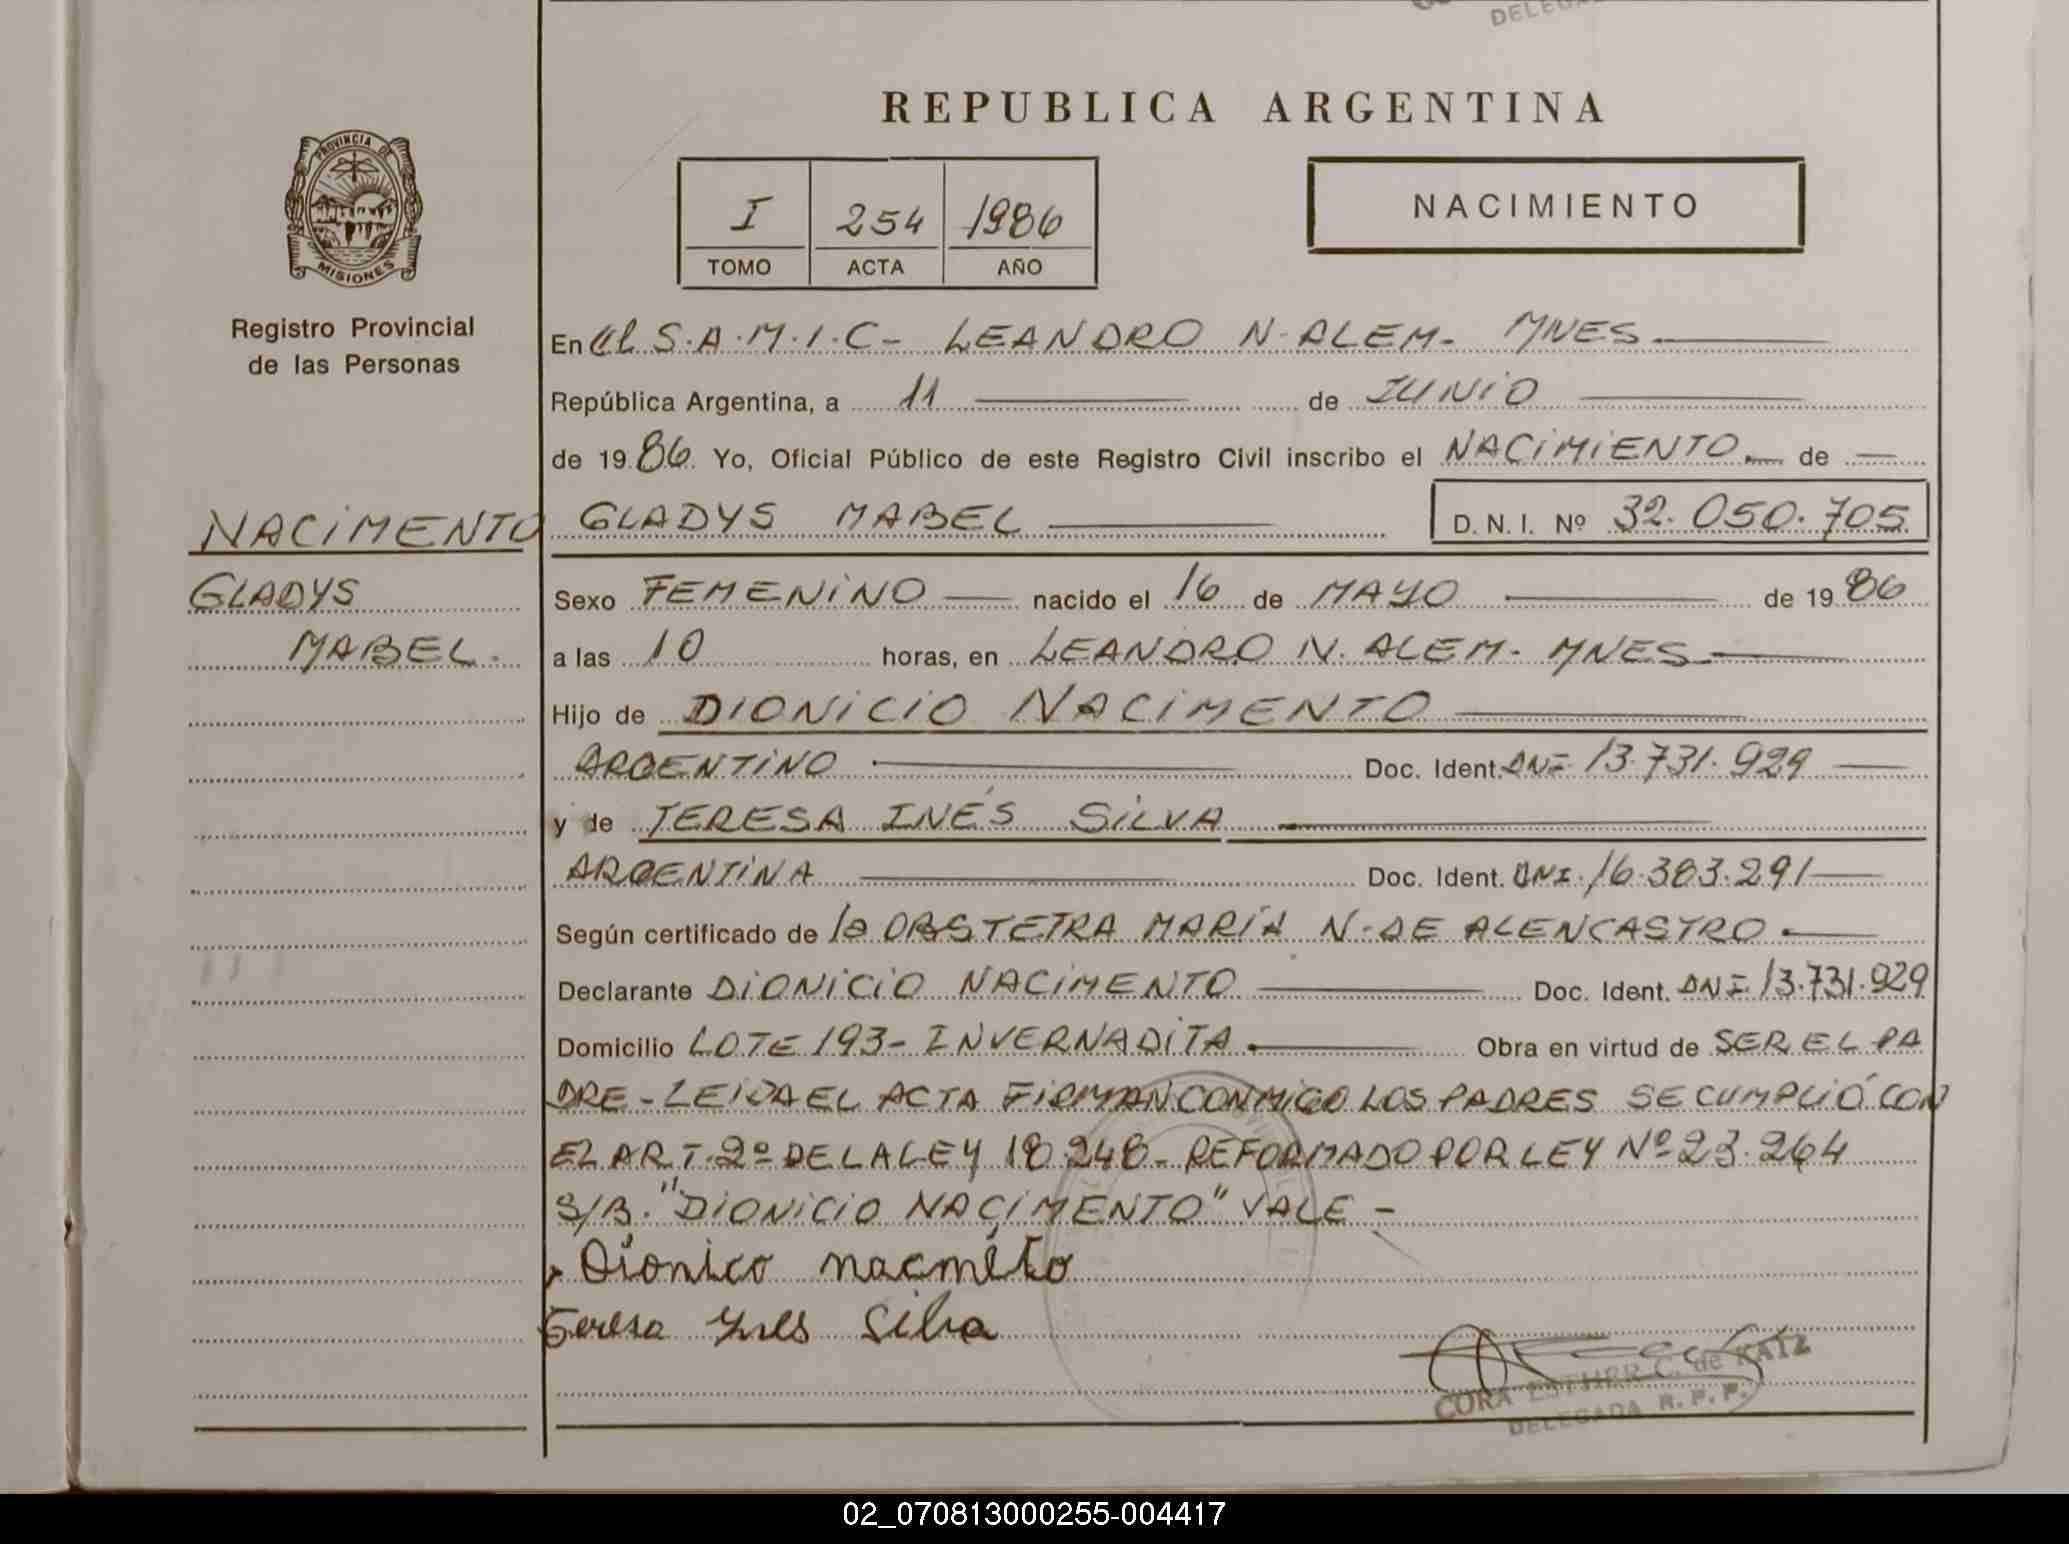 DELEGA
REPUBLICA ARGENTINA
PROVINCIA DE
MISIONES
I 254 1986
TOMO ACTA AÑO
NACIMIENTO
Registro Provincial
de las Personas
En el S.A.M.I.C- LEANDRO N. ALEM- MNES.
República Argentina, a 11 de JUNIO
de 1986. Yo, Oficial Público de este Registro Civil inscribo el NACIMIENTO. de
NACIMENTO
GLADYS MABEL D. N. I. Nº 32.050.705
GLADYS
MABEL.
Sexo FEMENINO nacido el 16 de MAYO de 1986
a las 10 horas, en LEANDRO N. ALEM- MNES
Hijo de DIONICIO NACIMENTO
ARGENTINO Doc. Ident. DNI 13.731.929
y de TERESA INÉS SILVA
ARGENTINA Doc. Ident. DNI. 16.383.291
Según certificado de la OBSTETRA MARIA N. DE ALENCASTRO.
Declarante DIONICIO NACIMENTO Doc. Ident. DNI 13.731.929
Domicilio LOTE 193- INVERNADITA. Obra en virtud de SER EL PA
DRE - LEIDA EL ACTA FIRMAN CONMIGO LOS PADRES SE CUMPLIÓ CON
EL ART. 2º DE LA LEY 18.248- REFORMADO POR LEY Nº 23.264
S/B. "DIONICIO NACIMENTO" VALE -
Dionico nacmeto
Teresa Ynes Silva
CORA ESTHER C. de KATZ
DELEGADA R. P. P.
02_070813000255-004417